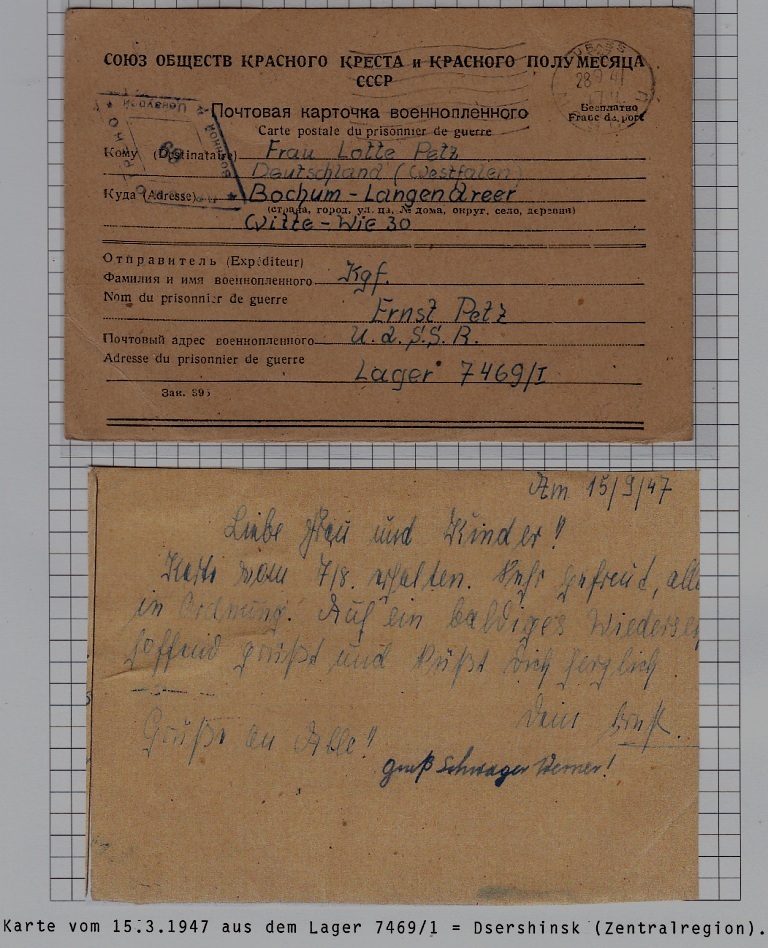 СОЮЗ ОБЩЕСТВ КРАСНОГО КРЕСТА и КРАСНОГО ПОЛУМЕСЯЦА
СССР
28 9 47
Почтовая карточка военнопленного
Carte postale du prisonnier de guerre
Бесплатно
Franc de port
Кому (Destinataire) Frau Lotte Petz
Deutschland (Westfalen)
Куда (Adresse) Bochum - Langendreer
(страна, город, улица, № дома, округ, село, деревня)
Witte - Wie 30
Отправитель (Expéditeur)
Фамилия и имя военнопленного Kgf.
Nom du prisonnier de guerre
Ernst Petz
Почтовый адрес военнопленного U.d.S.S.R.
Adresse du prisonnier de guerre
Lager 7469/I
Зак. 595
Am 15/9/47
Liebe Frau und Kinder!
Karte vom 7/8. erhalten. Sehr gefreut, alle
in Ordnung. Auf ein baldiges Wiederseh
hoffend grüßt und küßt Dich herzlich
Dein Ernst.
Grüße an Alle!
gruß Schwager Werner!
Karte vom 15.3.1947 aus dem Lager 7469/1 = Dsershinsk (Zentralregion).